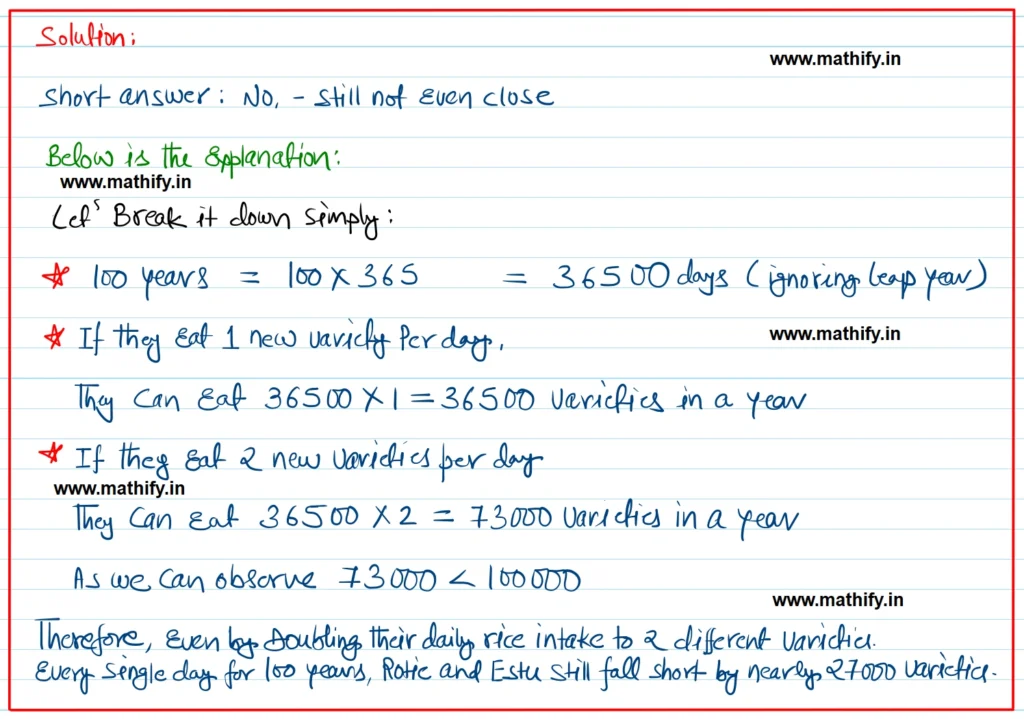 Solution:
www.mathify.in
Short answer: No, - Still not Even close
Below is the Explanation:
www.mathify.in
Let's Break it down simply:
☆ 100 years = 100 × 365 = 36500 days (ignoring leap year)
☆ If they Eat 1 new variety Per day,
www.mathify.in
They Can Eat 36500 × 1 = 36500 Varieties in a year
☆ If they Eat 2 new Varieties per day
www.mathify.in
They Can Eat 36500 × 2 = 73000 Varieties in a year
As we Can observe 73000 < 100000
www.mathify.in
Therefore, Even by Doubling their daily rice intake to 2 different Varieties.
Every single day for 100 years, Rotic and Estu Still fall short by nearly 27000 varieties.